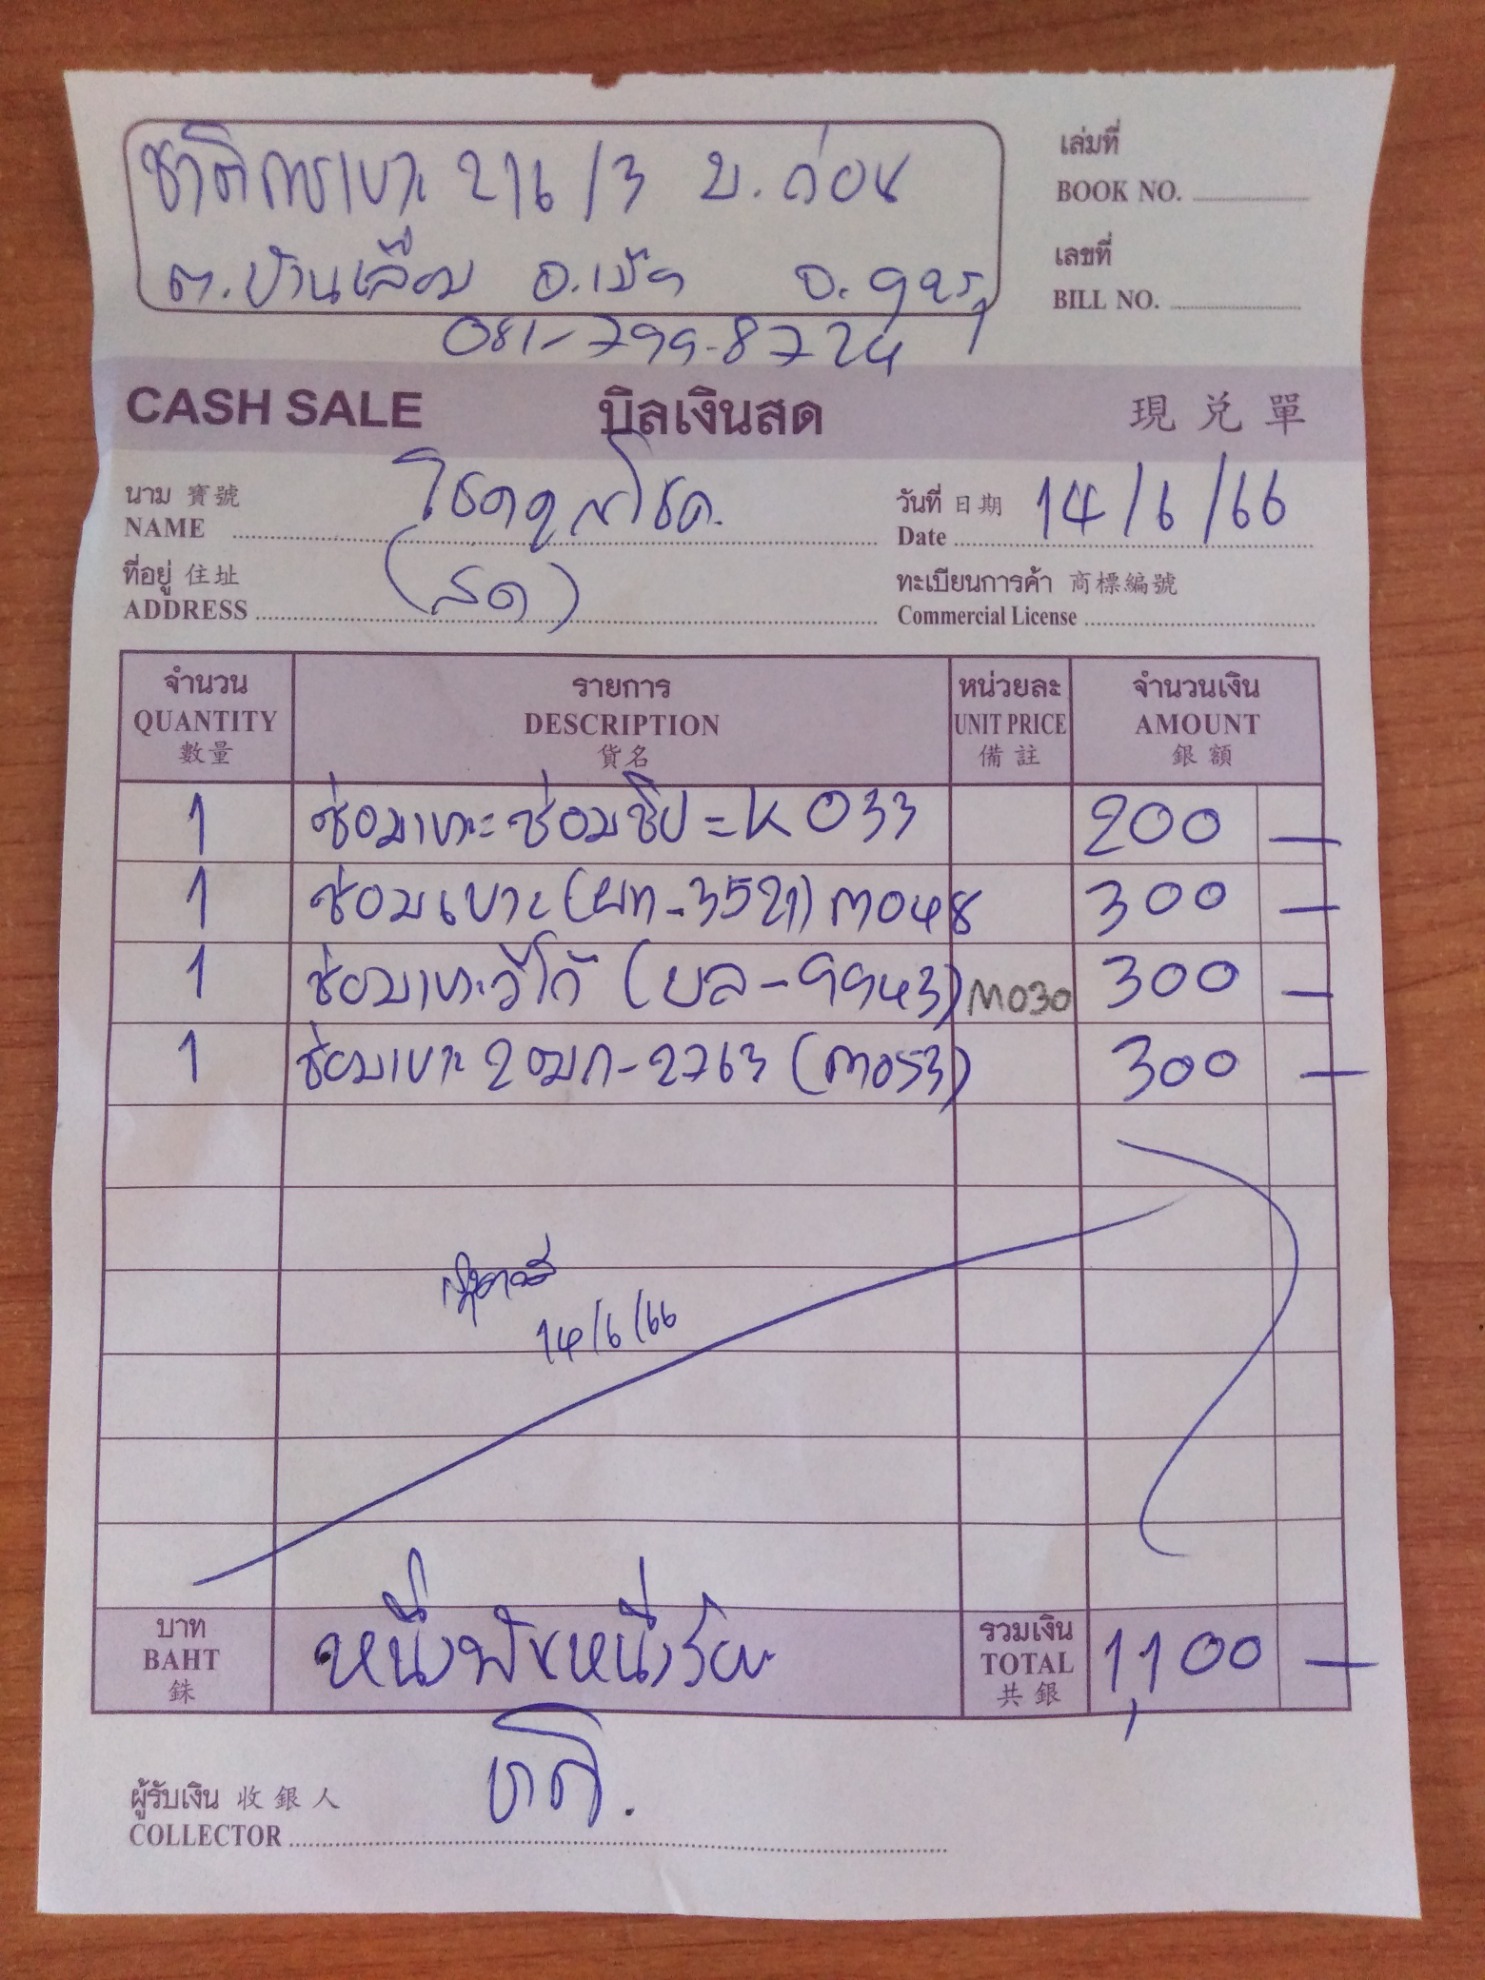 ชาติการเบาะ 216/3 บ.ถ่อน
ต.บ้านเลื่อม อ.เมือง จ.อุดร
081-799-8724
เล่มที่
BOOK NO.
เลขที่
BILL NO.
CASH SALE บิลเงินสด 現兌單
นาม 寶號
NAME โชคคูณโชค.
วันที่ 日期
Date 14/6/66
ที่อยู่ 住址
ADDRESS (สด)
ทะเบียนการค้า 商標編號
Commercial License
จำนวน รายการ หน่วยละ จำนวนเงิน
QUANTITY DESCRIPTION UNIT PRICE AMOUNT
數量 貨名 備註 銀額
1 ซ่อมเบาะซ่อมซิป=K033 200 —
1 ซ่อมเบาะ(ผท-3521) M048 300 —
1 ซ่อมเบาะวีโก้ (บล-9943) M030 300 —
1 ซ่อมเบาะ 2ฒก-2763 (M053) 300 —
14/6/66
บาท
BAHT หนึ่งพันหนึ่งร้อย
銖
รวมเงิน
TOTAL 1,100 —
共銀
ผู้รับเงิน 收銀人
COLLECTOR ชาติ.